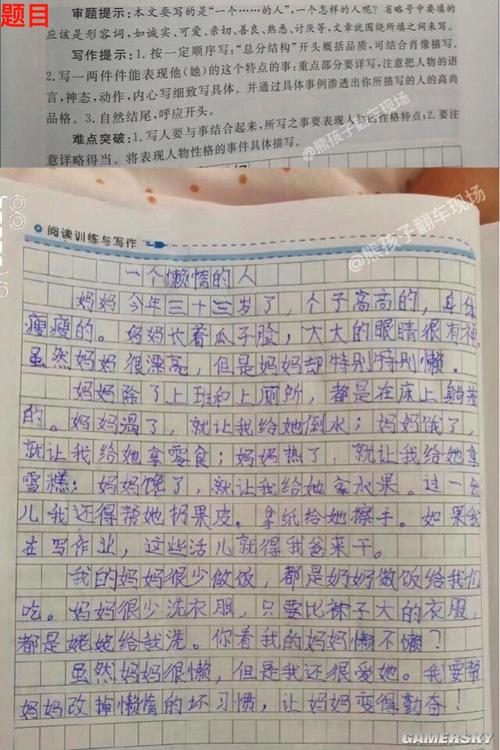 题目
审题提示:本文要写的是“一个……的人”,一个怎样的人呢?省略号中要填的
应该是形容词,如诚实、可爱、亲切、善良、熟悉、讨厌等,文章就围绕所填之词来写。
写作提示:1.按一定顺序写:“总分结构”开头概括品质,可结合肖像描写。
2.写一两件件能表现他(她)的这个特点的事;重点部分要详写,注意把人物的语
言,神态,动作,内心写细致写具体。并通过具体事例渗透出你所描写的人的高尚
品格。3.自然结尾,呼应开头。
难点突破:1.写人要与事结合起来,所写之事要表现人物的性格特点;2.要注
意详略得当。将表现人物性格的事件具体描写。
@熊孩子翻车现场
阅读训练与写作
@熊孩子翻车现场
一个懒惰的人
妈妈今年三十三岁了,个子高高的,身体
瘦瘦的。妈妈长着瓜子脸,大大的眼睛很有神。
虽然妈妈很漂亮,但是妈妈却特别特别懒。
妈妈除了上班和上厕所,都是在床上躺着
的。妈妈渴了,就让我给她倒水;妈妈饿了,
就让我给她拿零食;妈妈热了,就让我给她拿
雪糕;妈妈馋了,就让我给她拿水果。过一会
儿我还得帮她扔果皮。拿纸给她擦手。如果我
在写作业,这些活儿就得我爸来干。
我的妈妈很少做饭,都是奶奶做饭给我们
吃。妈妈很少洗衣服,只要比袜子大的衣服,
都是姥姥给我洗。你看我的妈妈懒不懒?
虽然妈妈很懒,但是我还很爱她。我要帮
妈妈改掉懒惰的坏习惯,让妈妈变得勤奋!
GAMERSKY